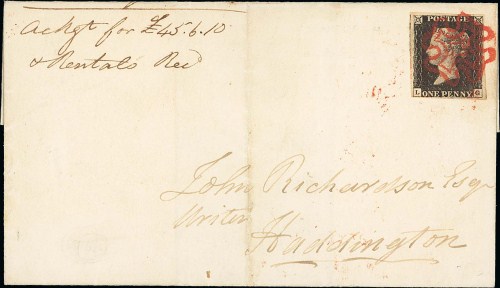 Ackgt for £45.6.10
& Rentals Recd
POSTAGE
L G
ONE PENNY
John Richardson Esqr
Writer
Haddington